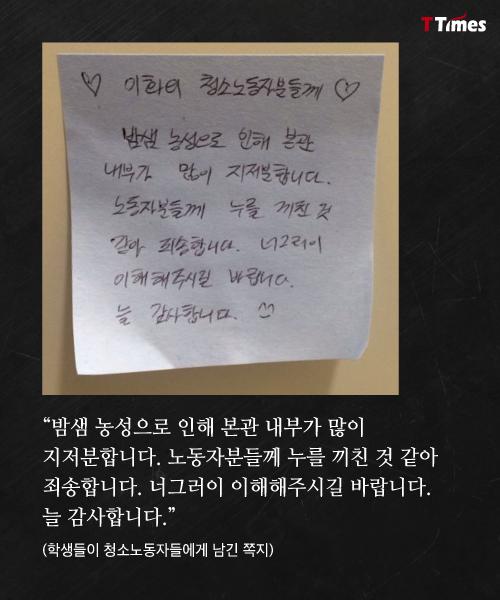 TTimes
♡ 이화의 청소노동자분들께 ♡
밤샘 농성으로 인해 본관
내부가 많이 지저분합니다.
노동자분들께 누를 끼친 것
같아 죄송합니다. 너그러이
이해해주시길 바랍니다.
늘 감사합니다.
“밤샘 농성으로 인해 본관 내부가 많이
지저분합니다. 노동자분들께 누를 끼친 것 같아
죄송합니다. 너그러이 이해해주시길 바랍니다.
늘 감사합니다.”
(학생들이 청소노동자들에게 남긴 쪽지)